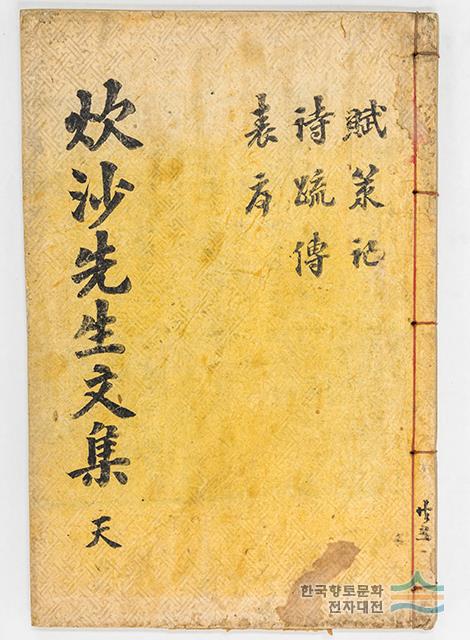 賦策記
詩疏傳
表序
炊沙先生文集 天
한국향토문화
전자대전